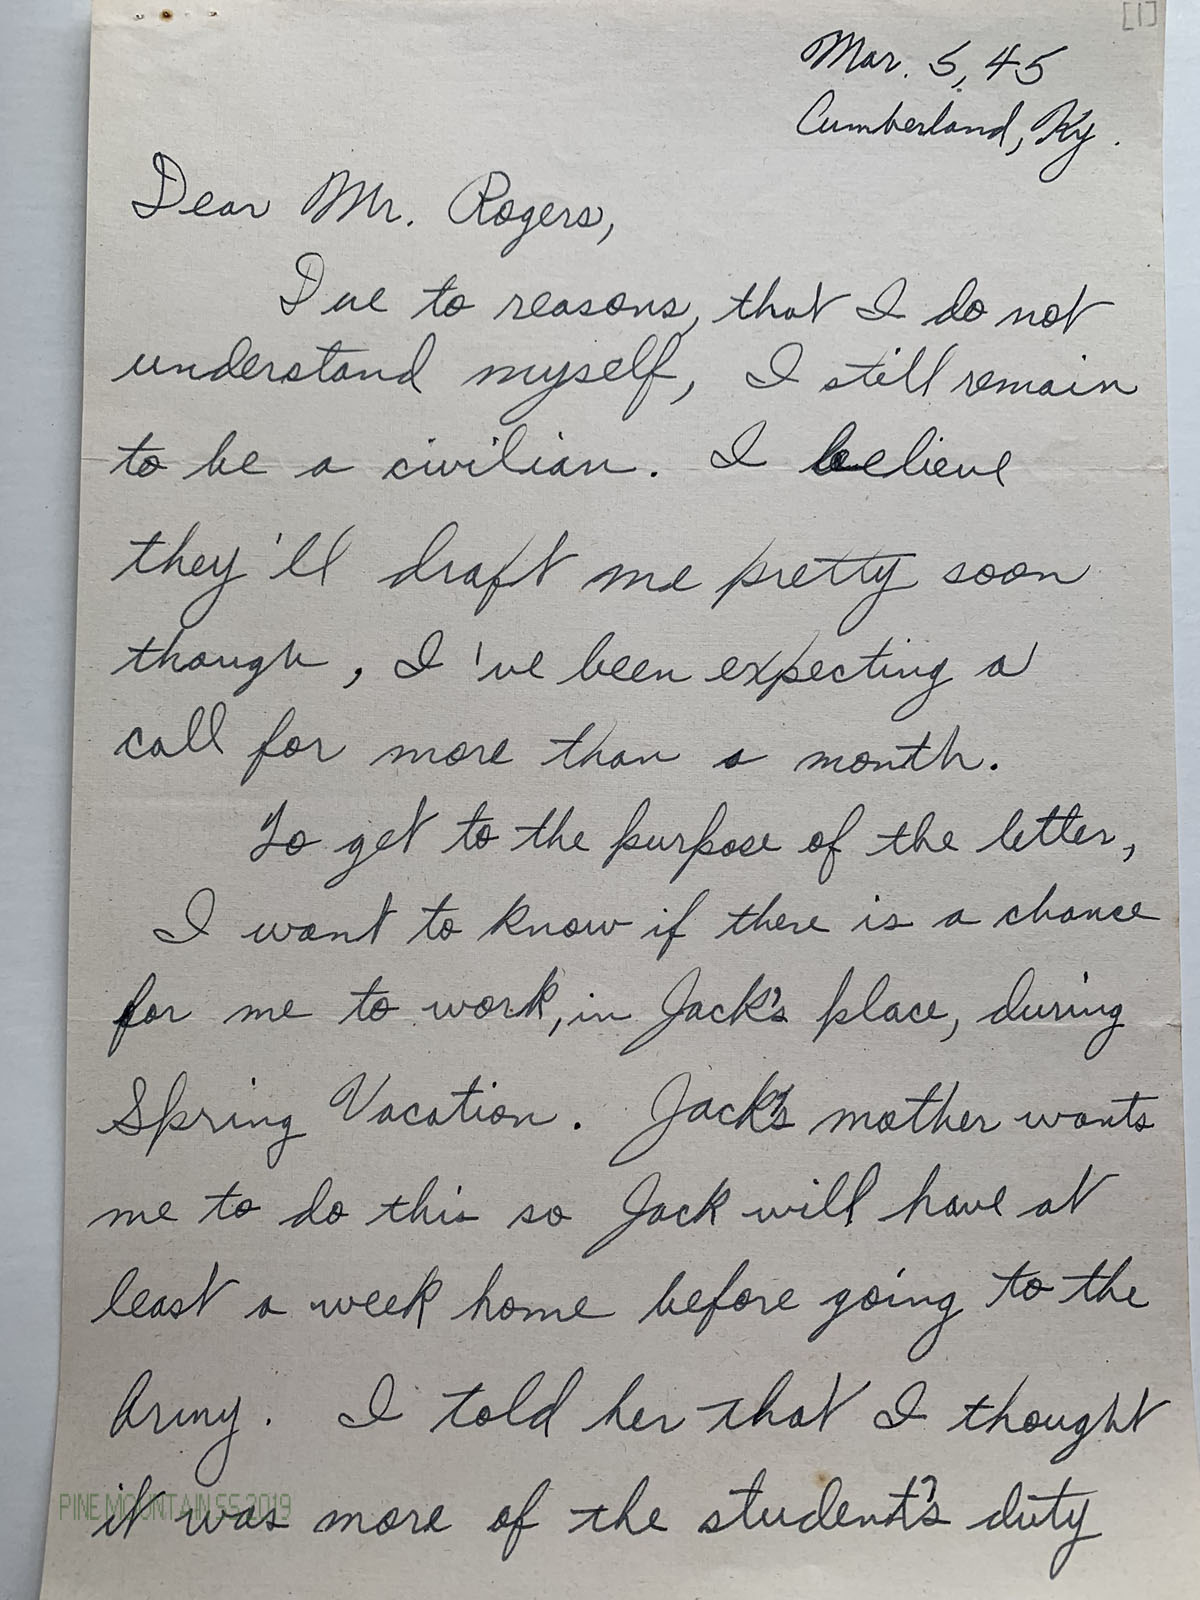 [1]
Mar. 5, 45
Cumberland, Ky.
Dear Mr. Rogers,
Due to reasons, that I do not
understand myself, I still remain
to be a civilian. I believe
they'll draft me pretty soon
though, I've been expecting a
call for more than a month.
To get to the purpose of the letter,
I want to know if there is a chance
for me to work, in Jack's place, during
Spring Vacation. Jack's mother wants
me to do this so Jack will have at
least a week home before going to the
Army. I told her that I thought
it was more of the student's duty
PINE MOUNTAIN SS 2019